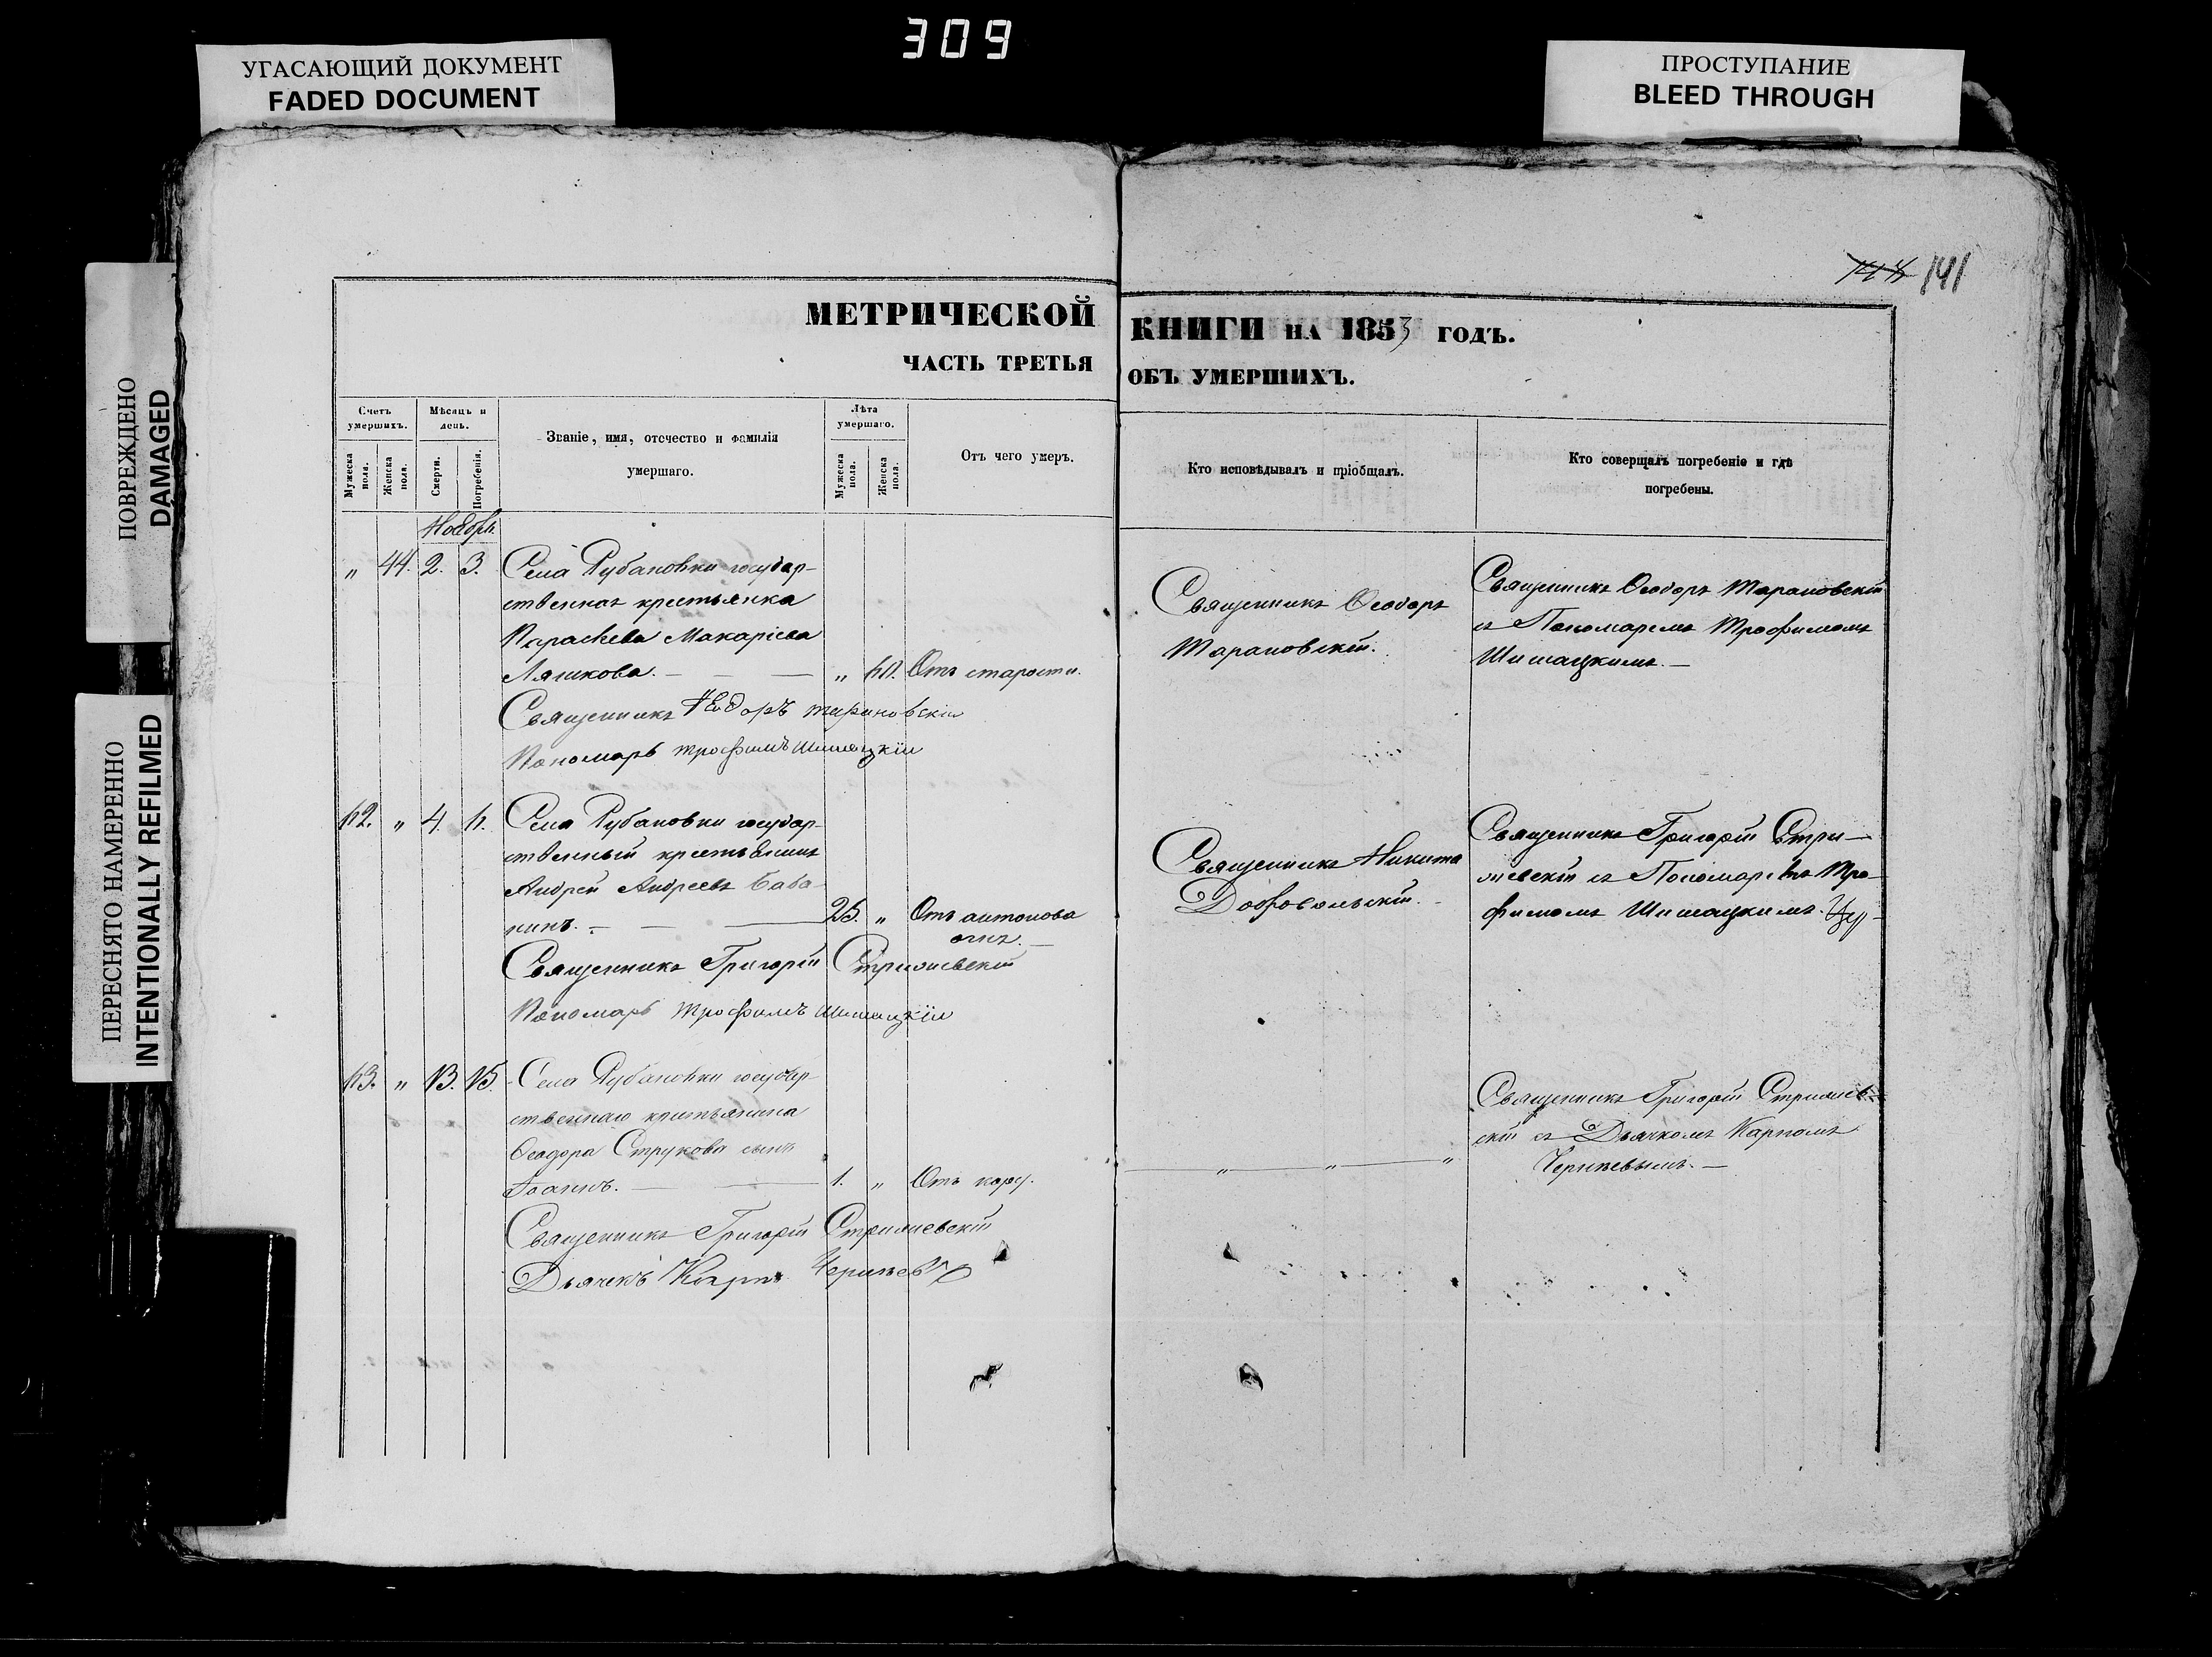 309
УГАСАЮЩИЙ ДОКУМЕНТ
FADED DOCUMENT
ПРОСТУПАНИЕ
BLEED THROUGH
ПОВРЕЖДЕНО
DAMAGED
ПЕРЕСНЯТО НАМЕРЕННО
INTENTIONALLY REFILMED
141
МЕТРИЧЕСКОЙ КНИГИ НА 1853 ГОДЪ.
ЧАСТЬ ТРЕТЬЯ ОБЪ УМЕРШИХЪ.
Счетъ умершихъ.
Мужеска пола.
Женска пола.
Мѣсяцъ и день.
Смерти.
Погребенія.
Званіе, имя, отчество и фамилія
умершаго.
Лѣта умершаго.
Мужеска пола.
Женска пола.
Отъ чего умеръ.
Кто исповѣдывалъ и пріобщалъ.
Кто совершалъ погребеніе и гдѣ
погребены.
Ноябрь.
„ 44. 2. 3. Села Рубановки государ-
ственная крестьянка
Параскева Макаріева
Ляшкова. — — — „ Отъ старости.
Священникъ Ѳеодоръ
Тарановскій.
Священникъ Ѳеодоръ Тарановскій
съ Пономаремъ Трофимомъ
Шишацкимъ. —
Священникъ Ѳеодоръ Тарановскій
Пономарь Трофимъ Шишацкій
„ 4. Села Рубановки государ-
ственный крестьянинъ
Андрей Андреевъ Баба-
нинъ. — — — 25. „ Отъ антонова
огня. —
Священникъ Никита
Добровольскій.
Священникъ Григорій Стри-
жевскій съ Пономаремъ Тро-
фимомъ Шишацкимъ.
Священникъ Григорій Стрижевскій
Пономарь Трофимъ Шишацкій
„ 13. 15. Села Рубановки государ-
ственнаго крестьянина
Ѳеодора Струкова сынъ
Іоаннъ. — — 1. „ Отъ кору.
„ — „ — „
Священникъ Григорій Стрижев-
скій съ Дьячкомъ Карпомъ
Черневымъ. —
Священникъ Григорій Стрижевскій
Дьячекъ Карпъ